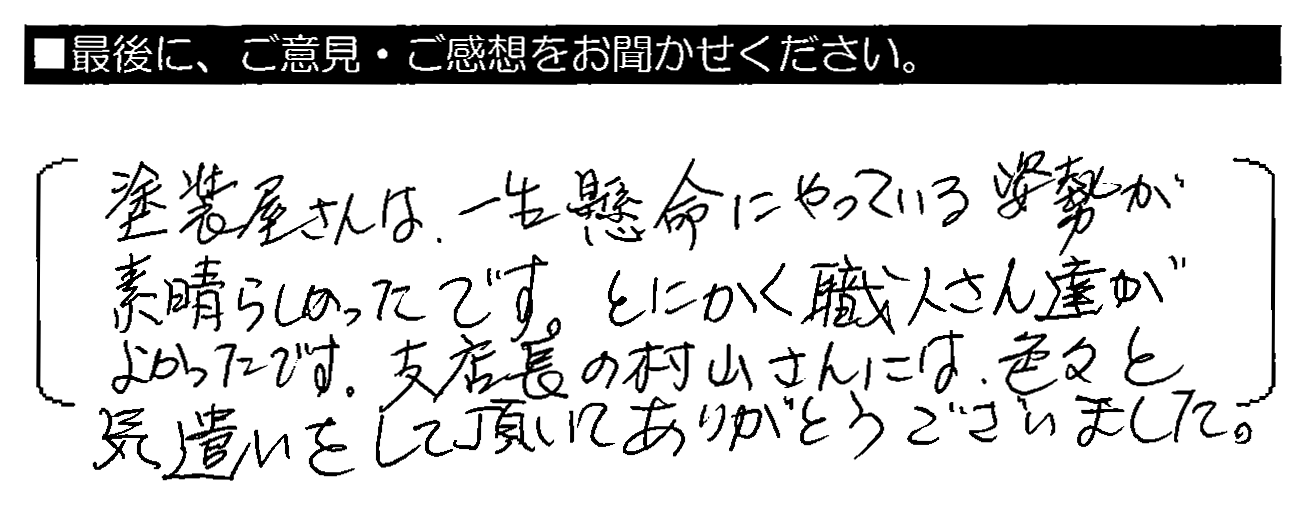 ■最後に、ご意見・ご感想をお聞かせください。
塗装屋さんは、一生懸命にやっている姿勢が
素晴らしかったです。とにかく職人さん達が
よかったです。支店長の村山さんには、色々と
気遣いをして頂いてありがとうございました。